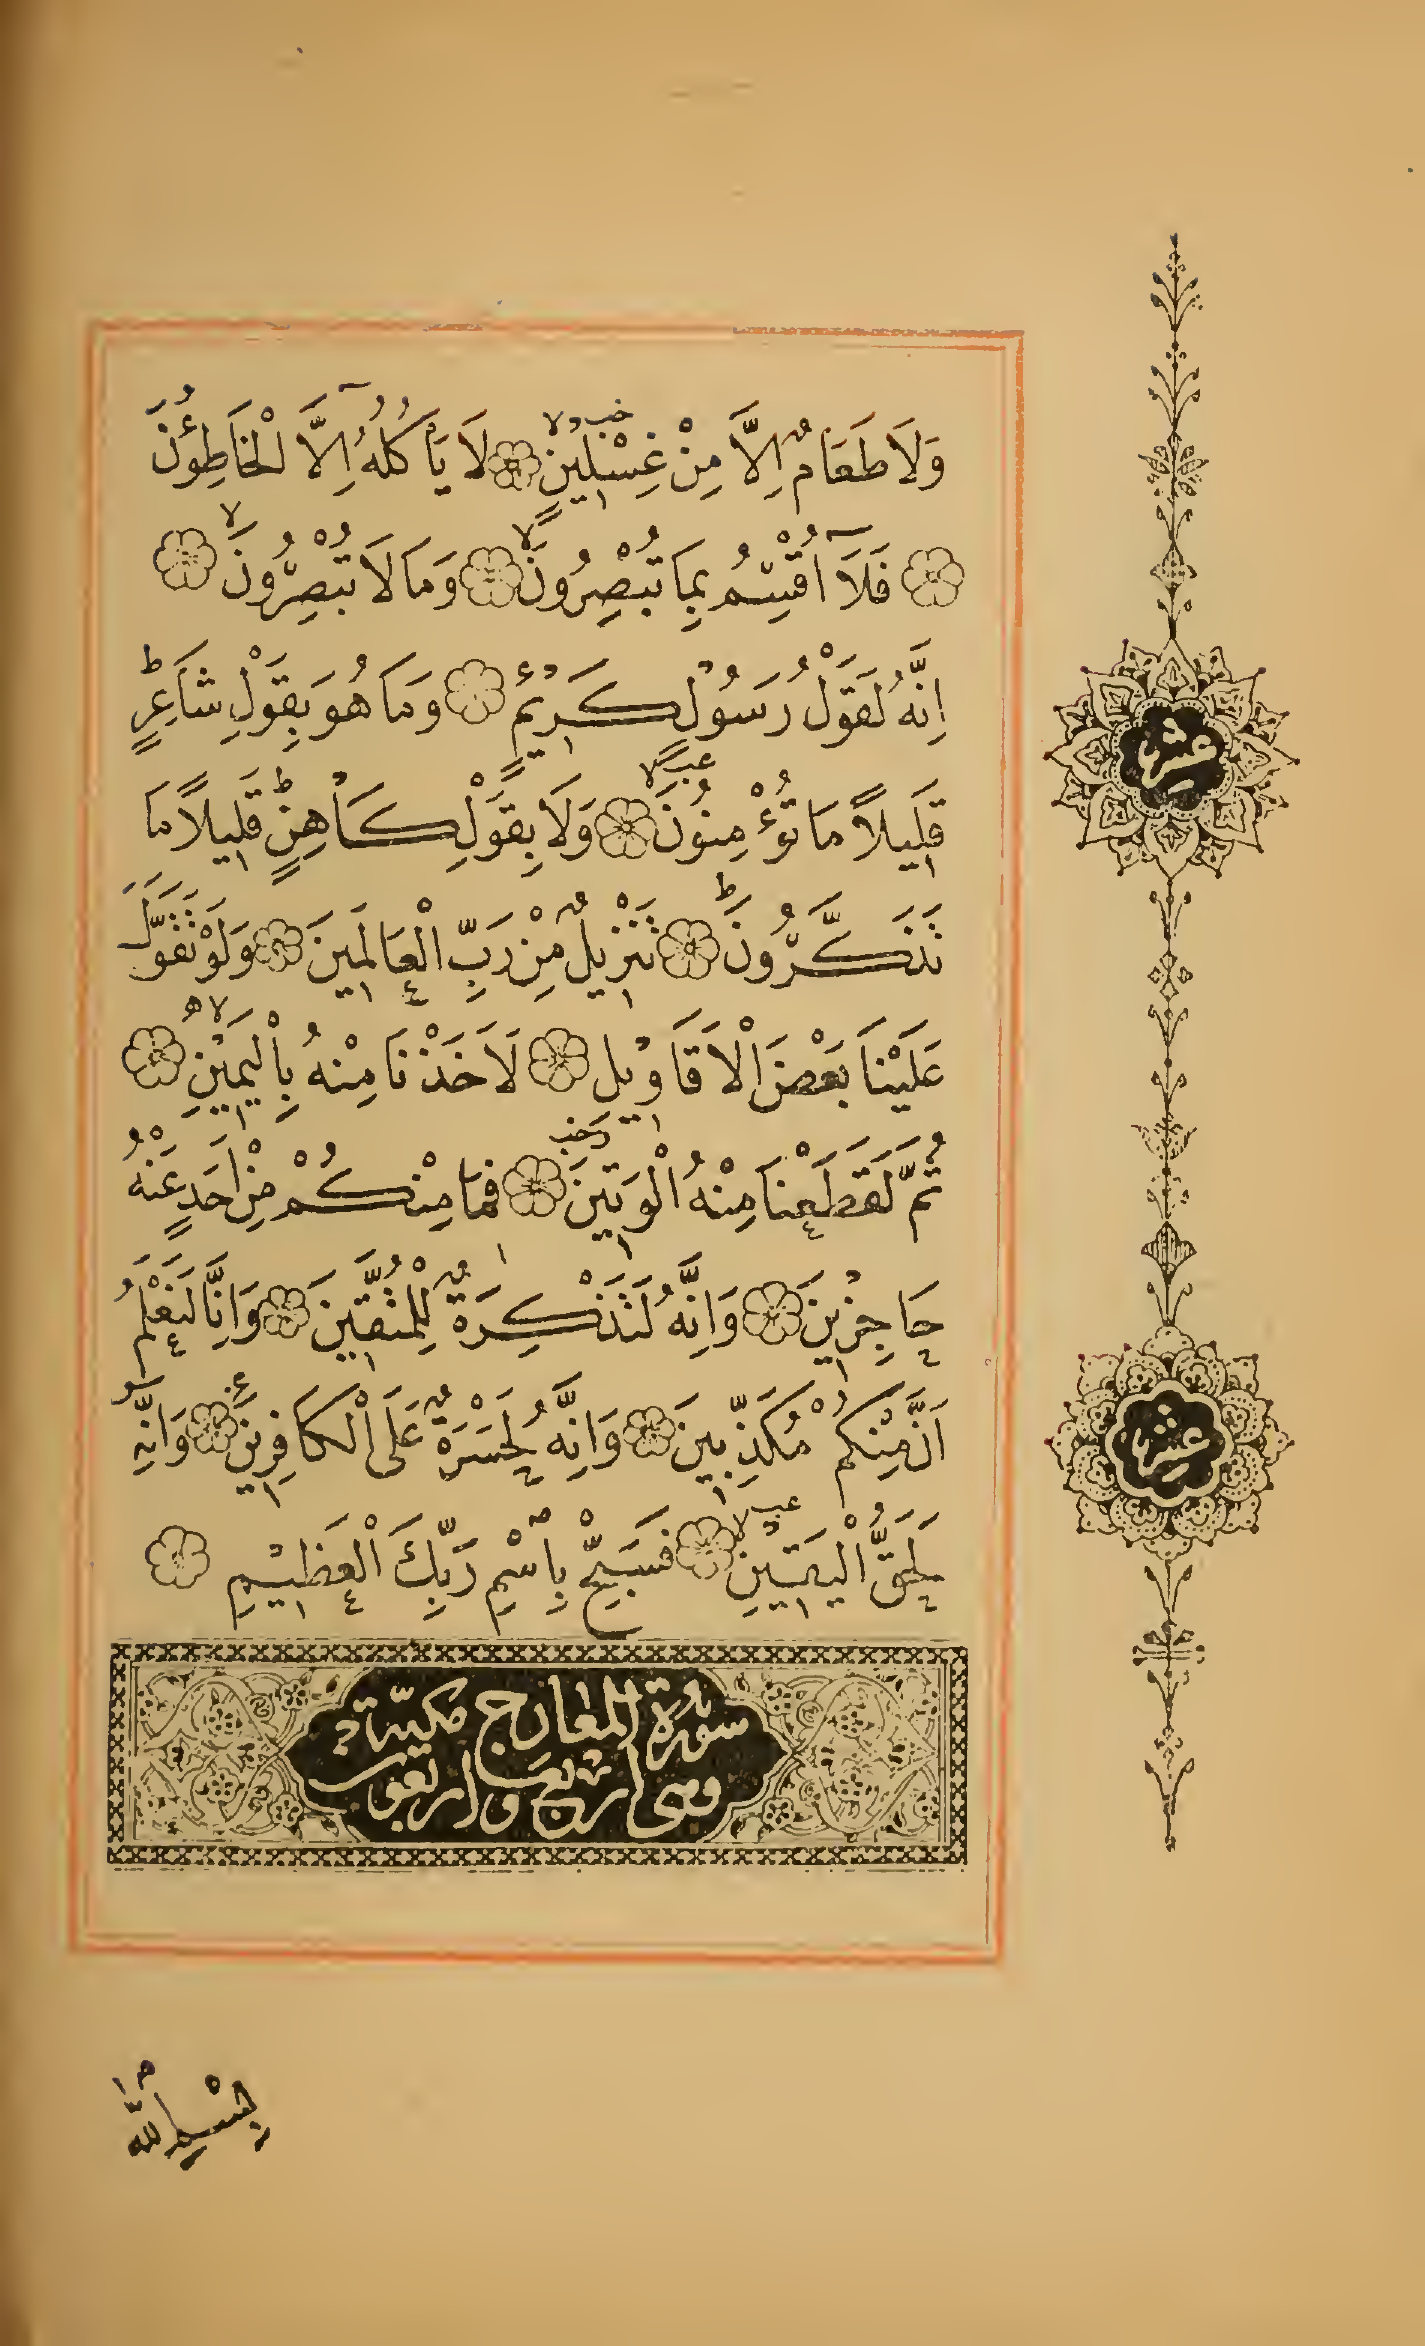 وَلَا طَعَامٌ اِلَّا مِنْ غِسْلِينٍ لَا يَأْكُلُهُ اِلَّا الْخَاطِؤُنَ
فَلَآ اُقْسِمُ بِمَا تُبْصِرُونَ وَمَا لَا تُبْصِرُونَ
اِنَّهُ لَقَوْلُ رَسُولٍ كَرِيمٍ وَمَا هُوَ بِقَوْلِ شَاعِرٍ
قَلِيلًا مَا تُؤْمِنُونَ وَلَا بِقَوْلِ كَاهِنٍ قَلِيلًا مَا
تَذَكَّرُونَ تَنْزِيلٌ مِنْ رَبِّ الْعَالَمِينَ وَلَوْ تَقَوَّلَ
عَلَيْنَا بَعْضَ الْاَقَاوِيلِ لَاَخَذْنَا مِنْهُ بِالْيَمِينِ
ثُمَّ لَقَطَعْنَا مِنْهُ الْوَتِينَ فَمَا مِنْكُمْ مِنْ اَحَدٍ عَنْهُ
حَاجِزِينَ وَاِنَّهُ لَتَذْكِرَةٌ لِلْمُتَّقِينَ وَاِنَّا لَنَعْلَمُ
اَنَّ مِنْكُمْ مُكَذِّبِينَ وَاِنَّهُ لَحَسْرَةٌ عَلَى الْكَافِرِينَ وَاِنَّهُ
لَحَقُّ الْيَقِينِ فَسَبِّحْ بِاسْمِ رَبِّكَ الْعَظِيمِ
سورة المعارج مكية
وهى اربع واربعون
بِسْمِ اللّٰهِ
عشر
عشر